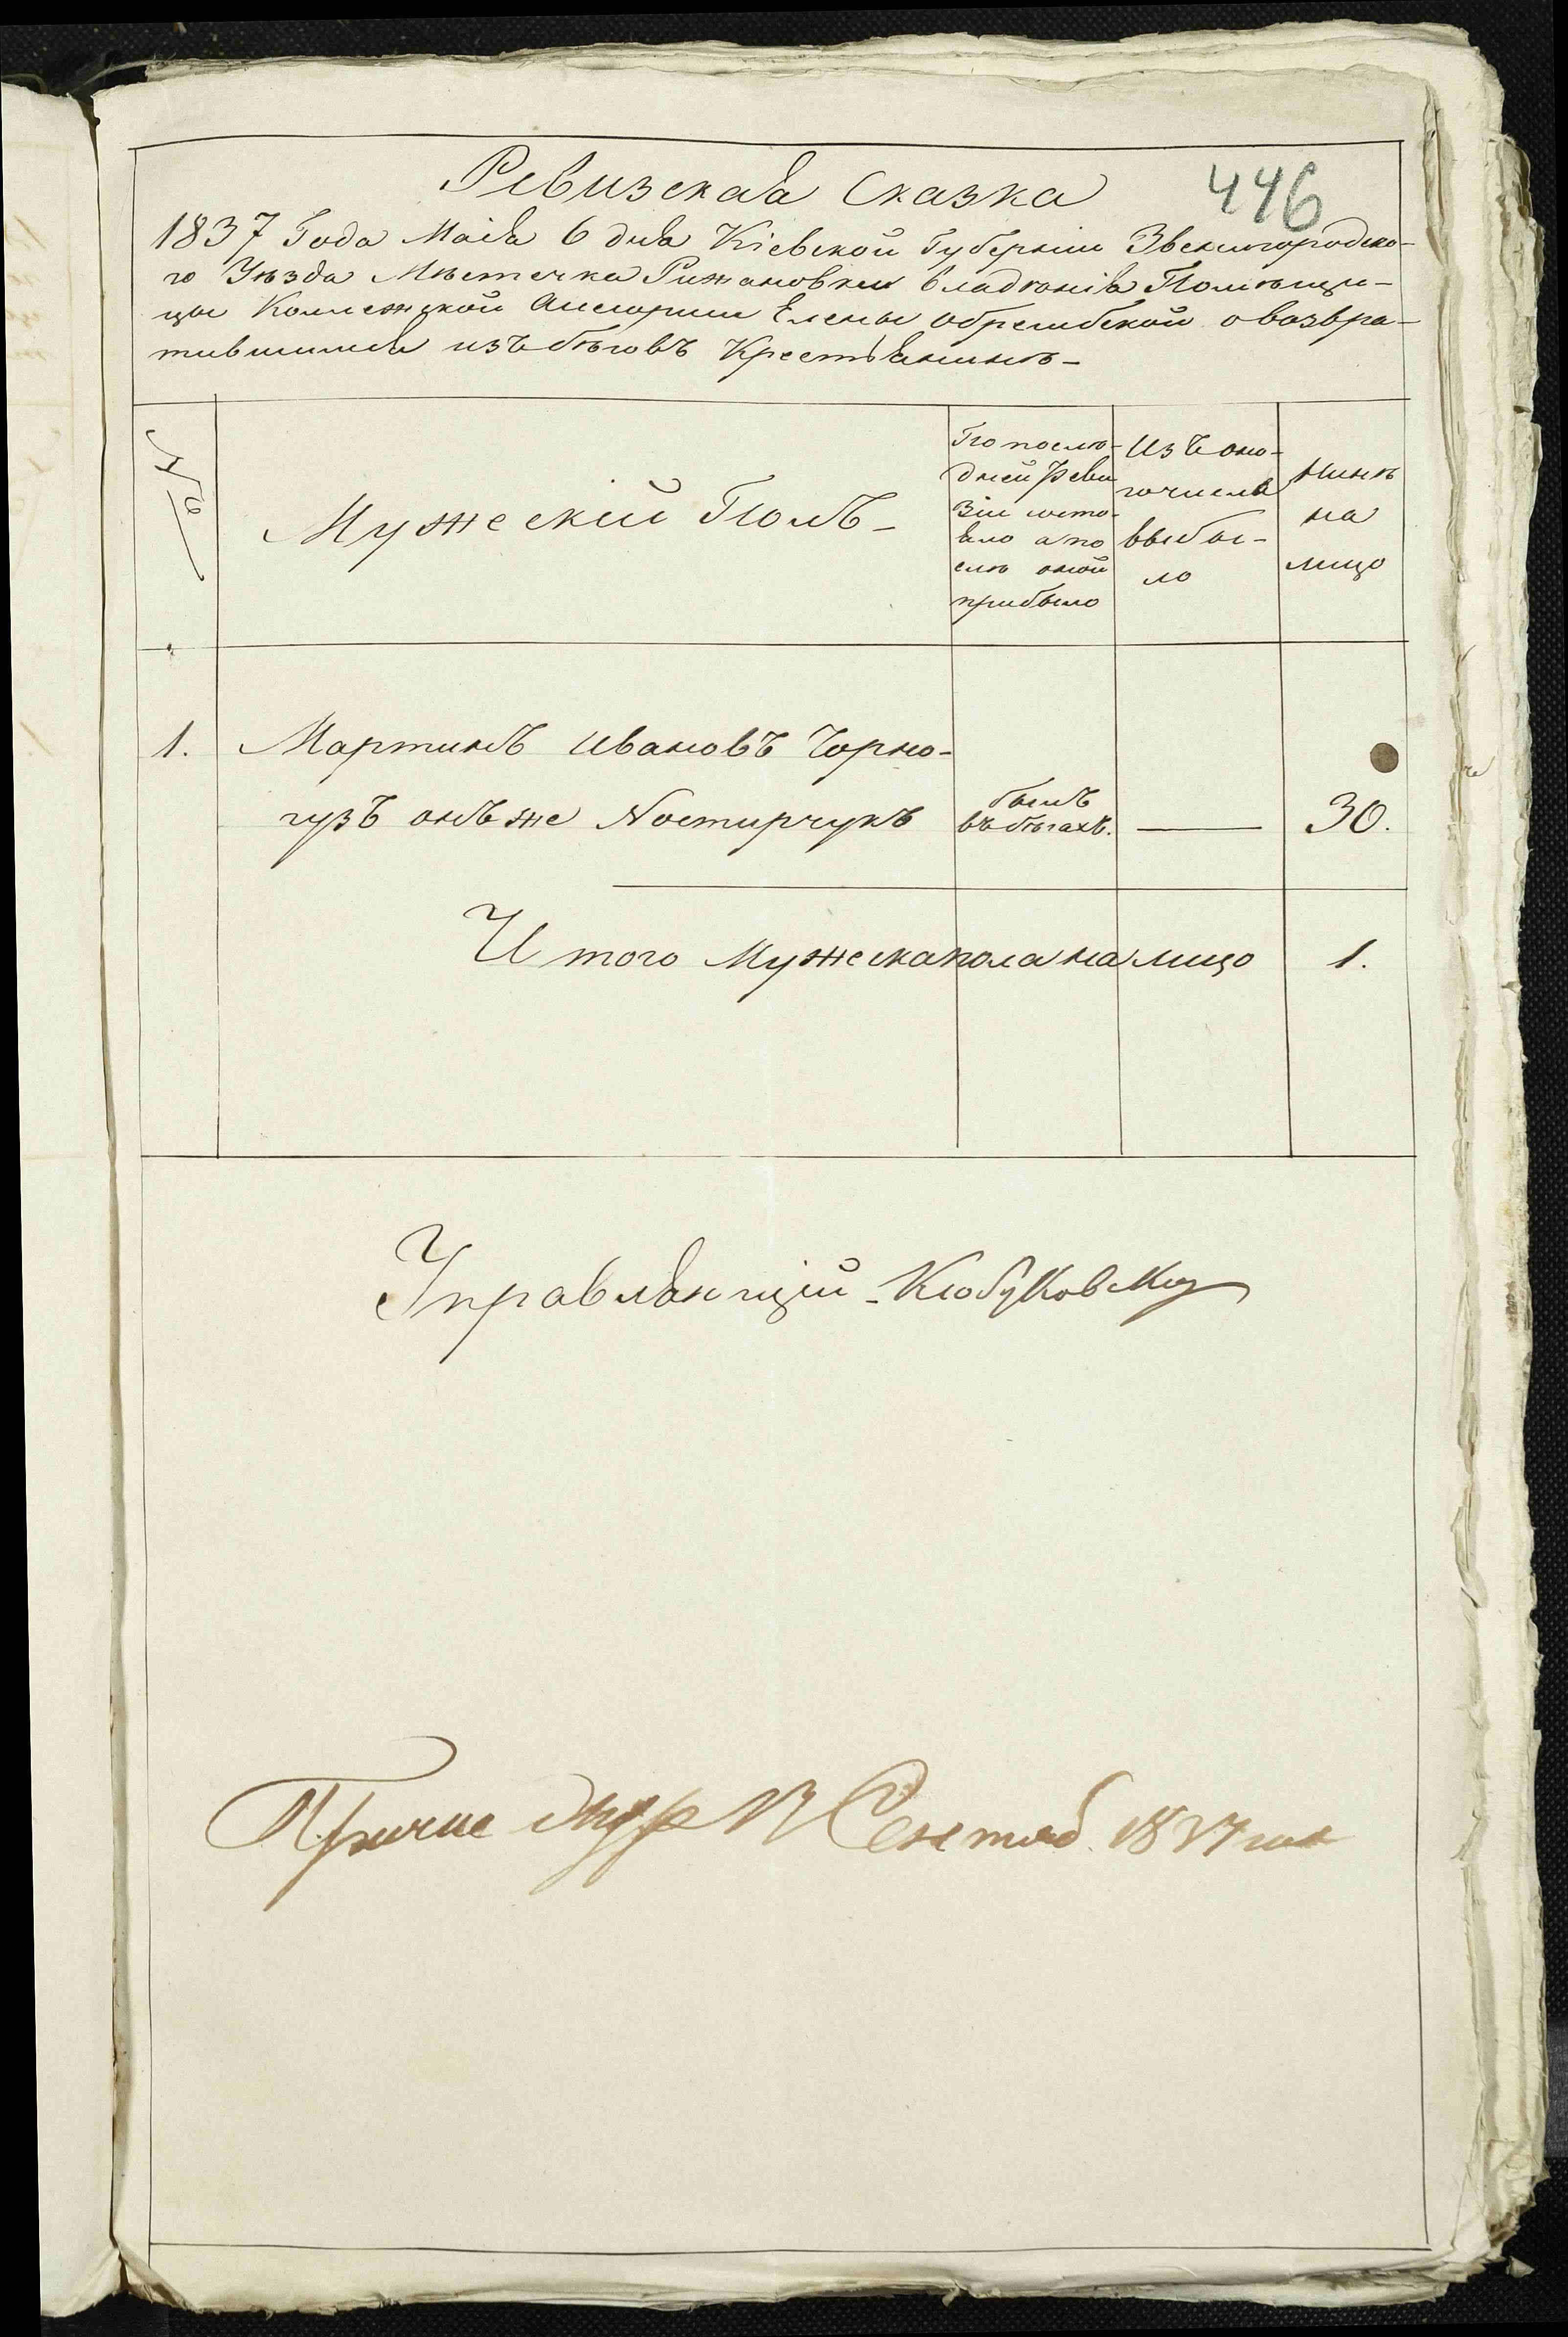 Ревизская Сказка
446
1837 Года Маія 6 дня Кіевской Губерніи Звенигородско-
го Уѣзда Мѣстечка Рижановки владѣнія Помѣщи-
цы Коллежской Ассесорши Елены Обрембской о возвра-
тившимся изъ бѣговъ Крестьянинѣ-
№
Мужескій Полъ-
По послѣ-
дней Реви
зіи состо-
яло а по
слѣ оной
прибыло
Изъ оно-
го числа
выбы-
ло
нинѣ
на
лицо
1. Мартинъ Ивановъ Чорно-
гузъ онъ же Нестирчукъ
былъ
въ бѣгахъ.
30.
И того Мужеска пола на лицо 1.
Управляющій Клобуковскій
Сентяб. 1837